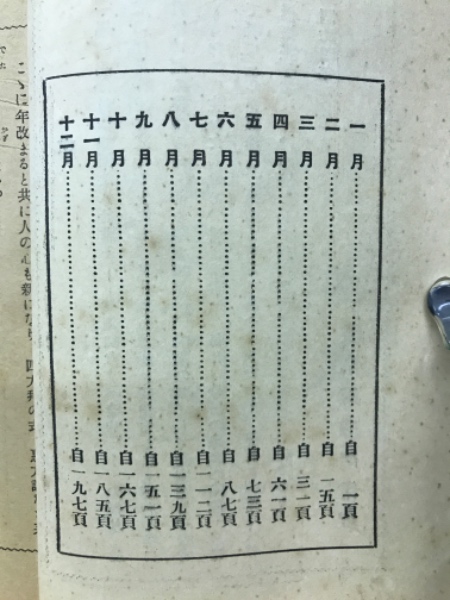 一月……自一頁
二月……自一五頁
三月……自三一頁
四月……自六一頁
五月……自七三頁
六月……自八七頁
七月……自一一二頁
八月……自一三九頁
九月……自一五一頁
十月……自一六七頁
十一月……自一八五頁
十二月……自一九七頁
に年改まると共に人の心も新になり